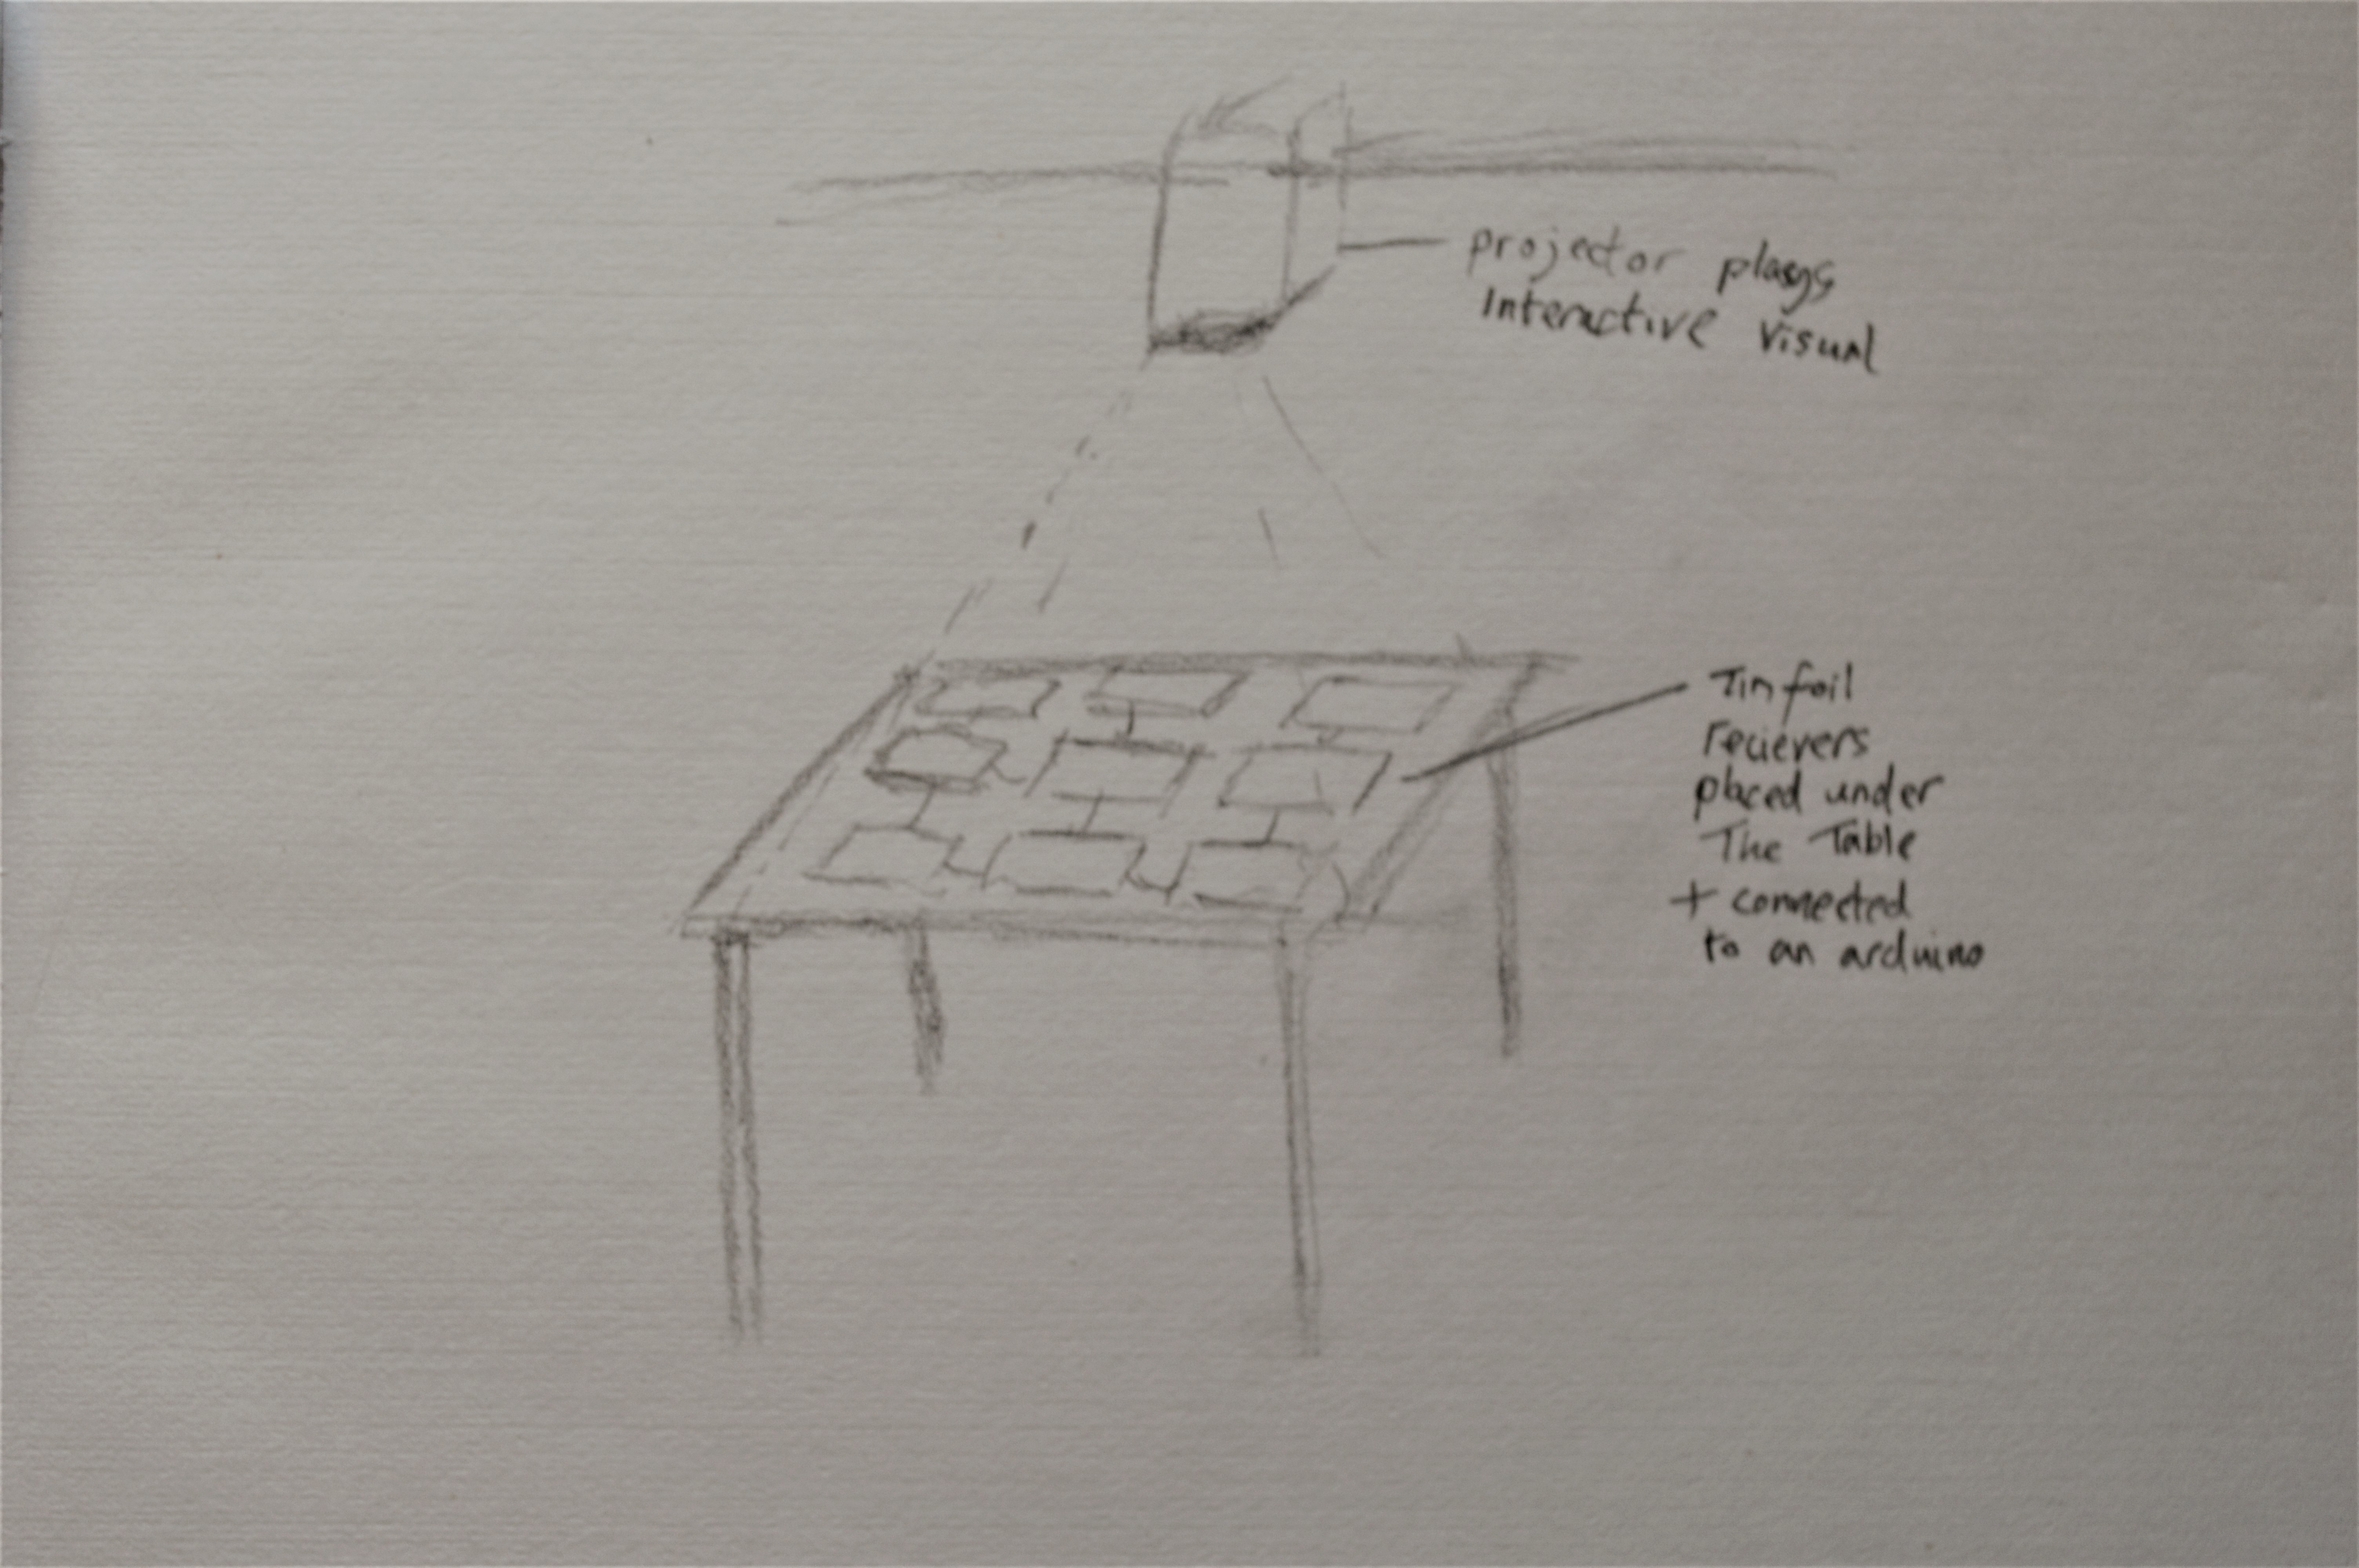 projector plasys
Interactive Visual
Tinfoil
recievers
placed under
The Table
+ connected
to an arduino